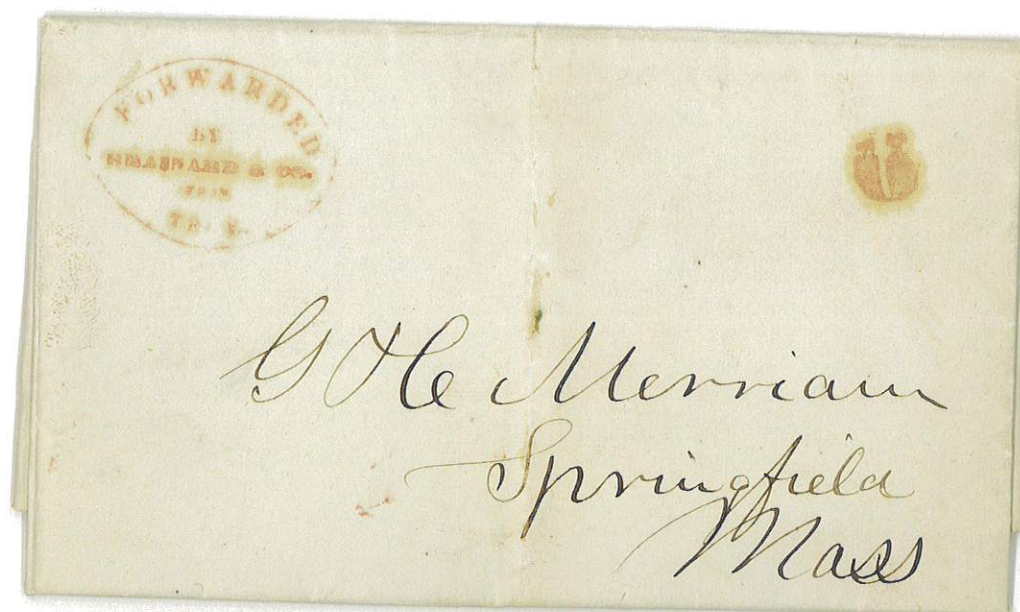 FORWARDED
BY
BRAINARD & CO.
FROM
TROY.
G & C Merriam
Springfield
Mass